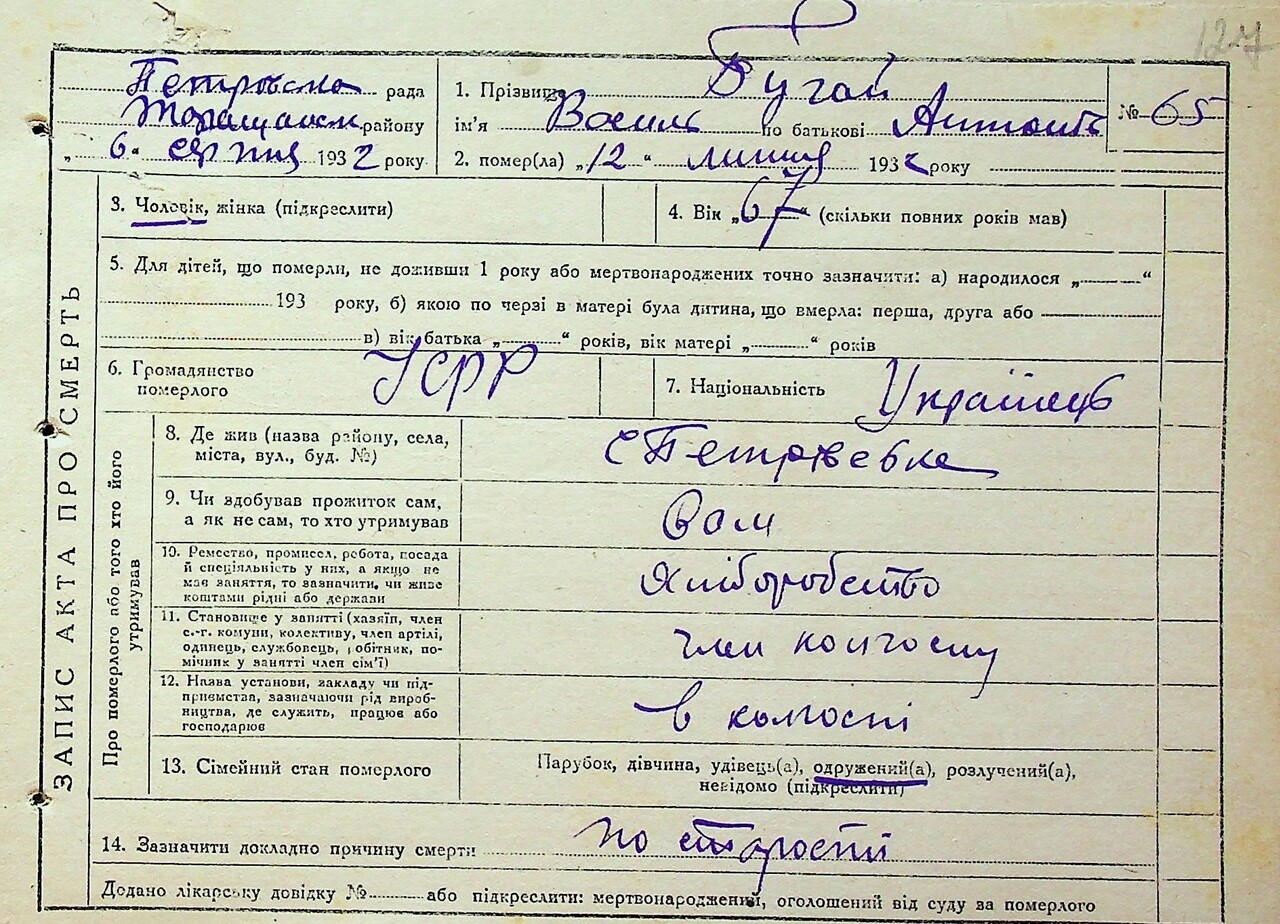 127
Петрівська рада
Таращанськ. району
„ 6 “ серпня 1932 року
1. Прізвище Бугай
ім'я Василь по батькові Антонів
№ 65
2. помер(ла) „12“ липня 1932 року
3. Чоловік, жінка (підкреслити)
4. Вік „67“ (скільки повних років мав)
5. Для дітей, що померли, не доживши 1 року або мертвонароджених точно зазначити: а) народилося „ “
193 року, б) якою по черзі в матері була дитина, що вмерла: перша, друга або
в) вік батька „ “ років, вік матері „ “ років
6. Громадянство
померлого
УСРР
7. Національність Українець
ЗАПИС АКТА ПРО СМЕРТЬ
Про померлого або того хто його
утримував
8. Де жив (назва району, села,
міста, вул., буд. №)
с Петрівська
9. Чи здобував прожиток сам,
а як не сам, то хто утримував
Сам
10. Ремество, промисел, робота, посада
й спеціяльність у них, а якщо не
має заняття, то зазначити, чи живе
коштами рідні або держави
Хліборобство
11. Становище у занятті (хазяїн, член
с.-г. комуни, колективу, член артілі,
одинець, службовець, робітник, по-
мічник у занятті член сім'ї)
член колгоспу
12. Назва установи, закладу чи під-
приємства, зазначаючи рід вироб-
ництва, де служить, працює або
господарює
в колгоспі
13. Сімейний стан померлого
Парубок, дівчина, удівець(а), одружений(а), розлучений(а),
невідомо (підкреслити)
14. Зазначити докладно причину смерти по старості
Додано лікарську довідку № або підкреслити: мертвонароджений, оголошений від суду за померлого